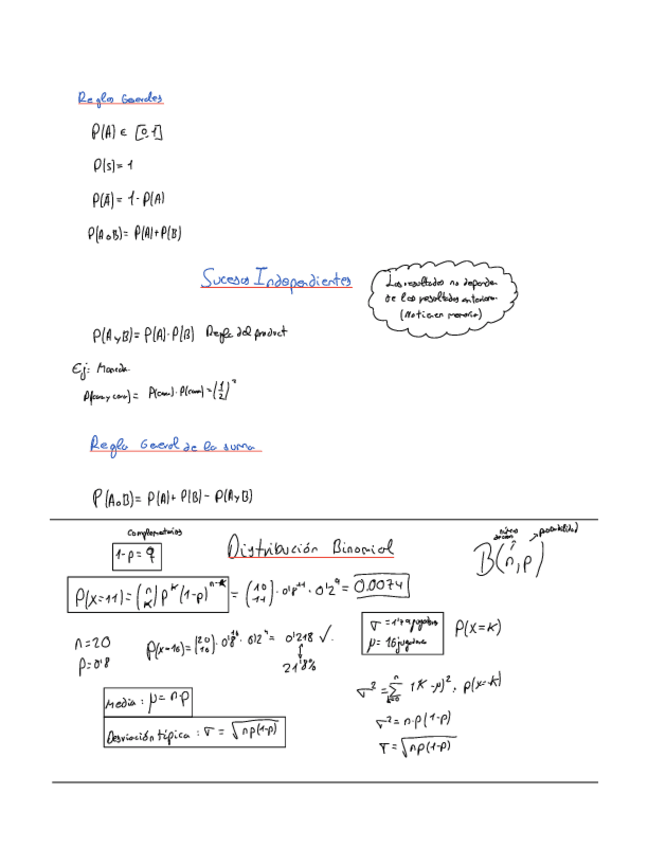 Reglas Generales
P(A) ∈ [0,1]
P(S) = 1
P(Ā) = 1 - P(A)
P(A o B) = P(A) + P(B)
Sucesos Independientes
Los resultados no dependen
de los resultados anteriores
(No tienen memoria)
P(A y B) = P(A) · P(B) Regla del product
Ej: Moneda
P(cara y cara) = P(cara) · P(cara) = (1/2)²
Regla General de la suma
P(A o B) = P(A) + P(B) - P(A y B)
complementarios
1-p = q
Distribución Binomial
probabilidad
B(n, p)
P(x=11) = (n K) p^K (1-p)^(n-K) = (10 11) · 0'8^11 · 0'2^9 = 0.0074
n = 20
p = 0'8
P(x=16) = (20 16) · 0'8^16 · 0'2^4 = 0'218 ✓.
21'8%
σ = 1'79 jugadores
μ = 16 jugadores
P(X=K)
Media : μ = n·p
Desviación típica : σ = √np(1-p)
σ² = Σ (K-μ)² · p(x=K)
σ² = n·p(1-p)
σ = √np(1-p)